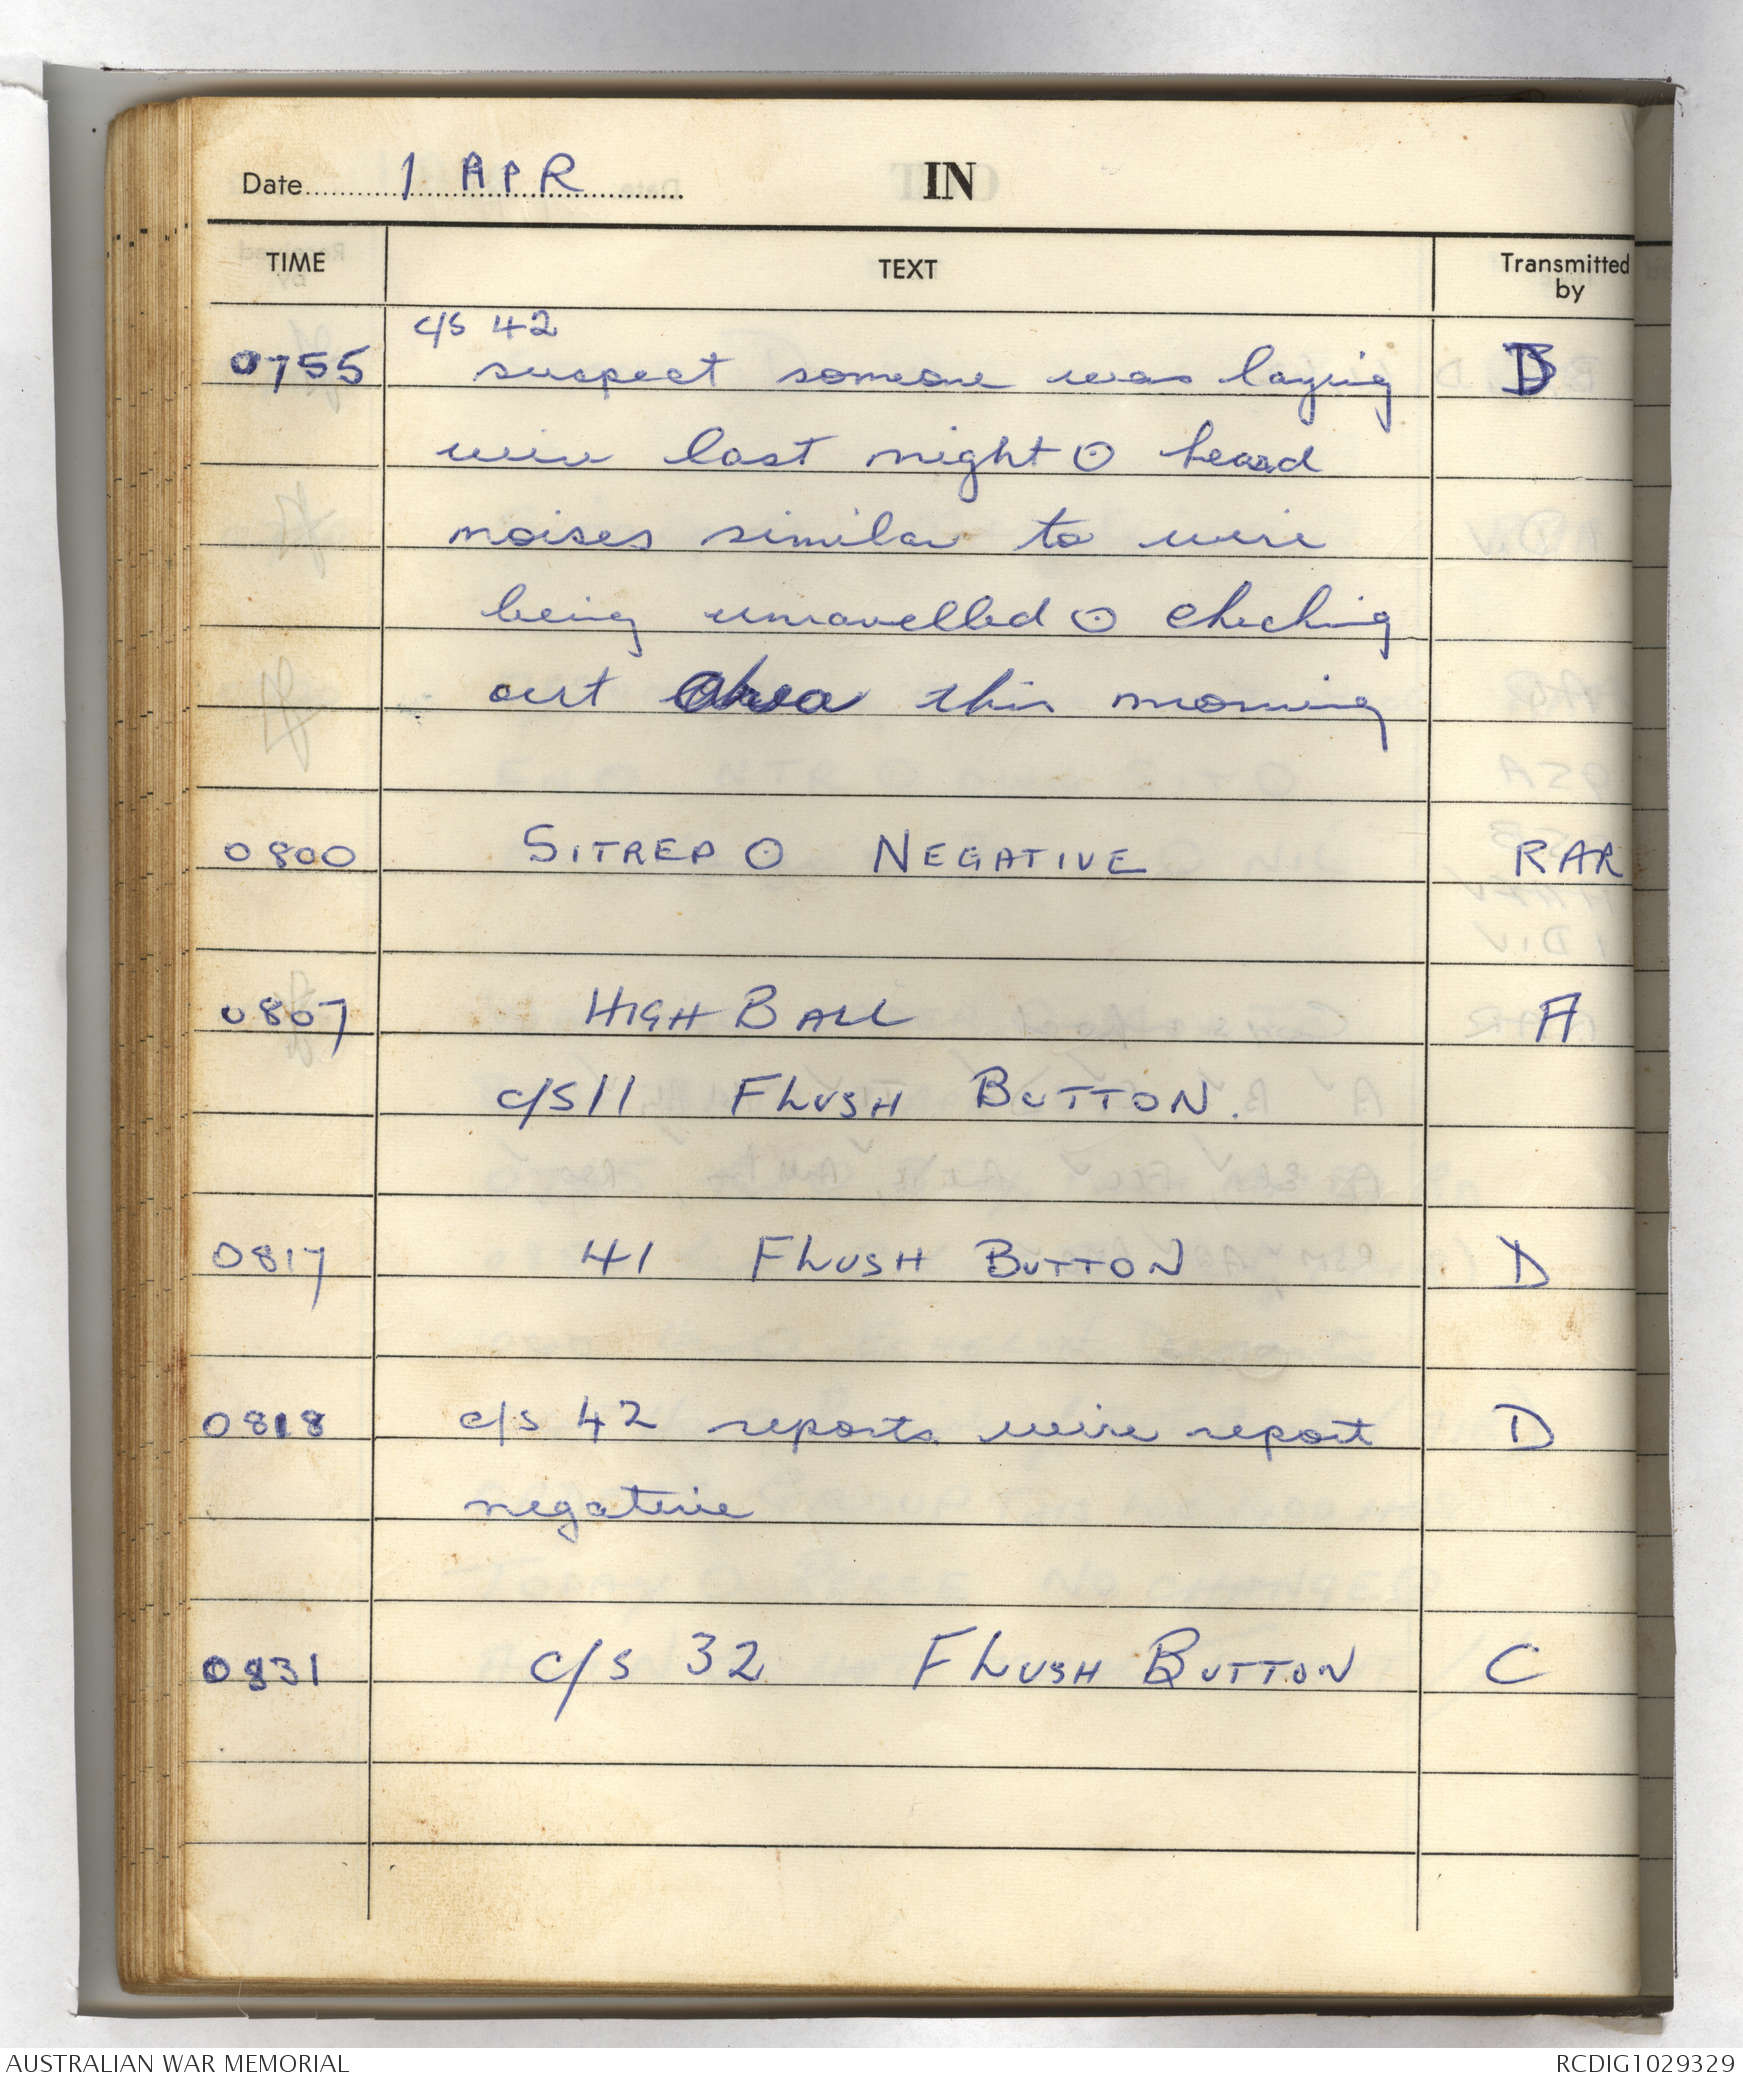 Date 1 APR IN
TIME TEXT Transmitted by
c/s 42
0755 suspect someone was laying D
wire last night ⊙ heard
noises similar to wire
being unravelled ⊙ checking
out area this morning
0800 SITREP ⊙ NEGATIVE RAR
0807 HIGH BALL A
c/s 11 FLUSH BUTTON.
0817 41 FLUSH BUTTON D
0818 c/s 42 reports wire report D
negative
0831 c/s 32 FLUSH BUTTON C
AUSTRALIAN WAR MEMORIAL RCDIG1029329